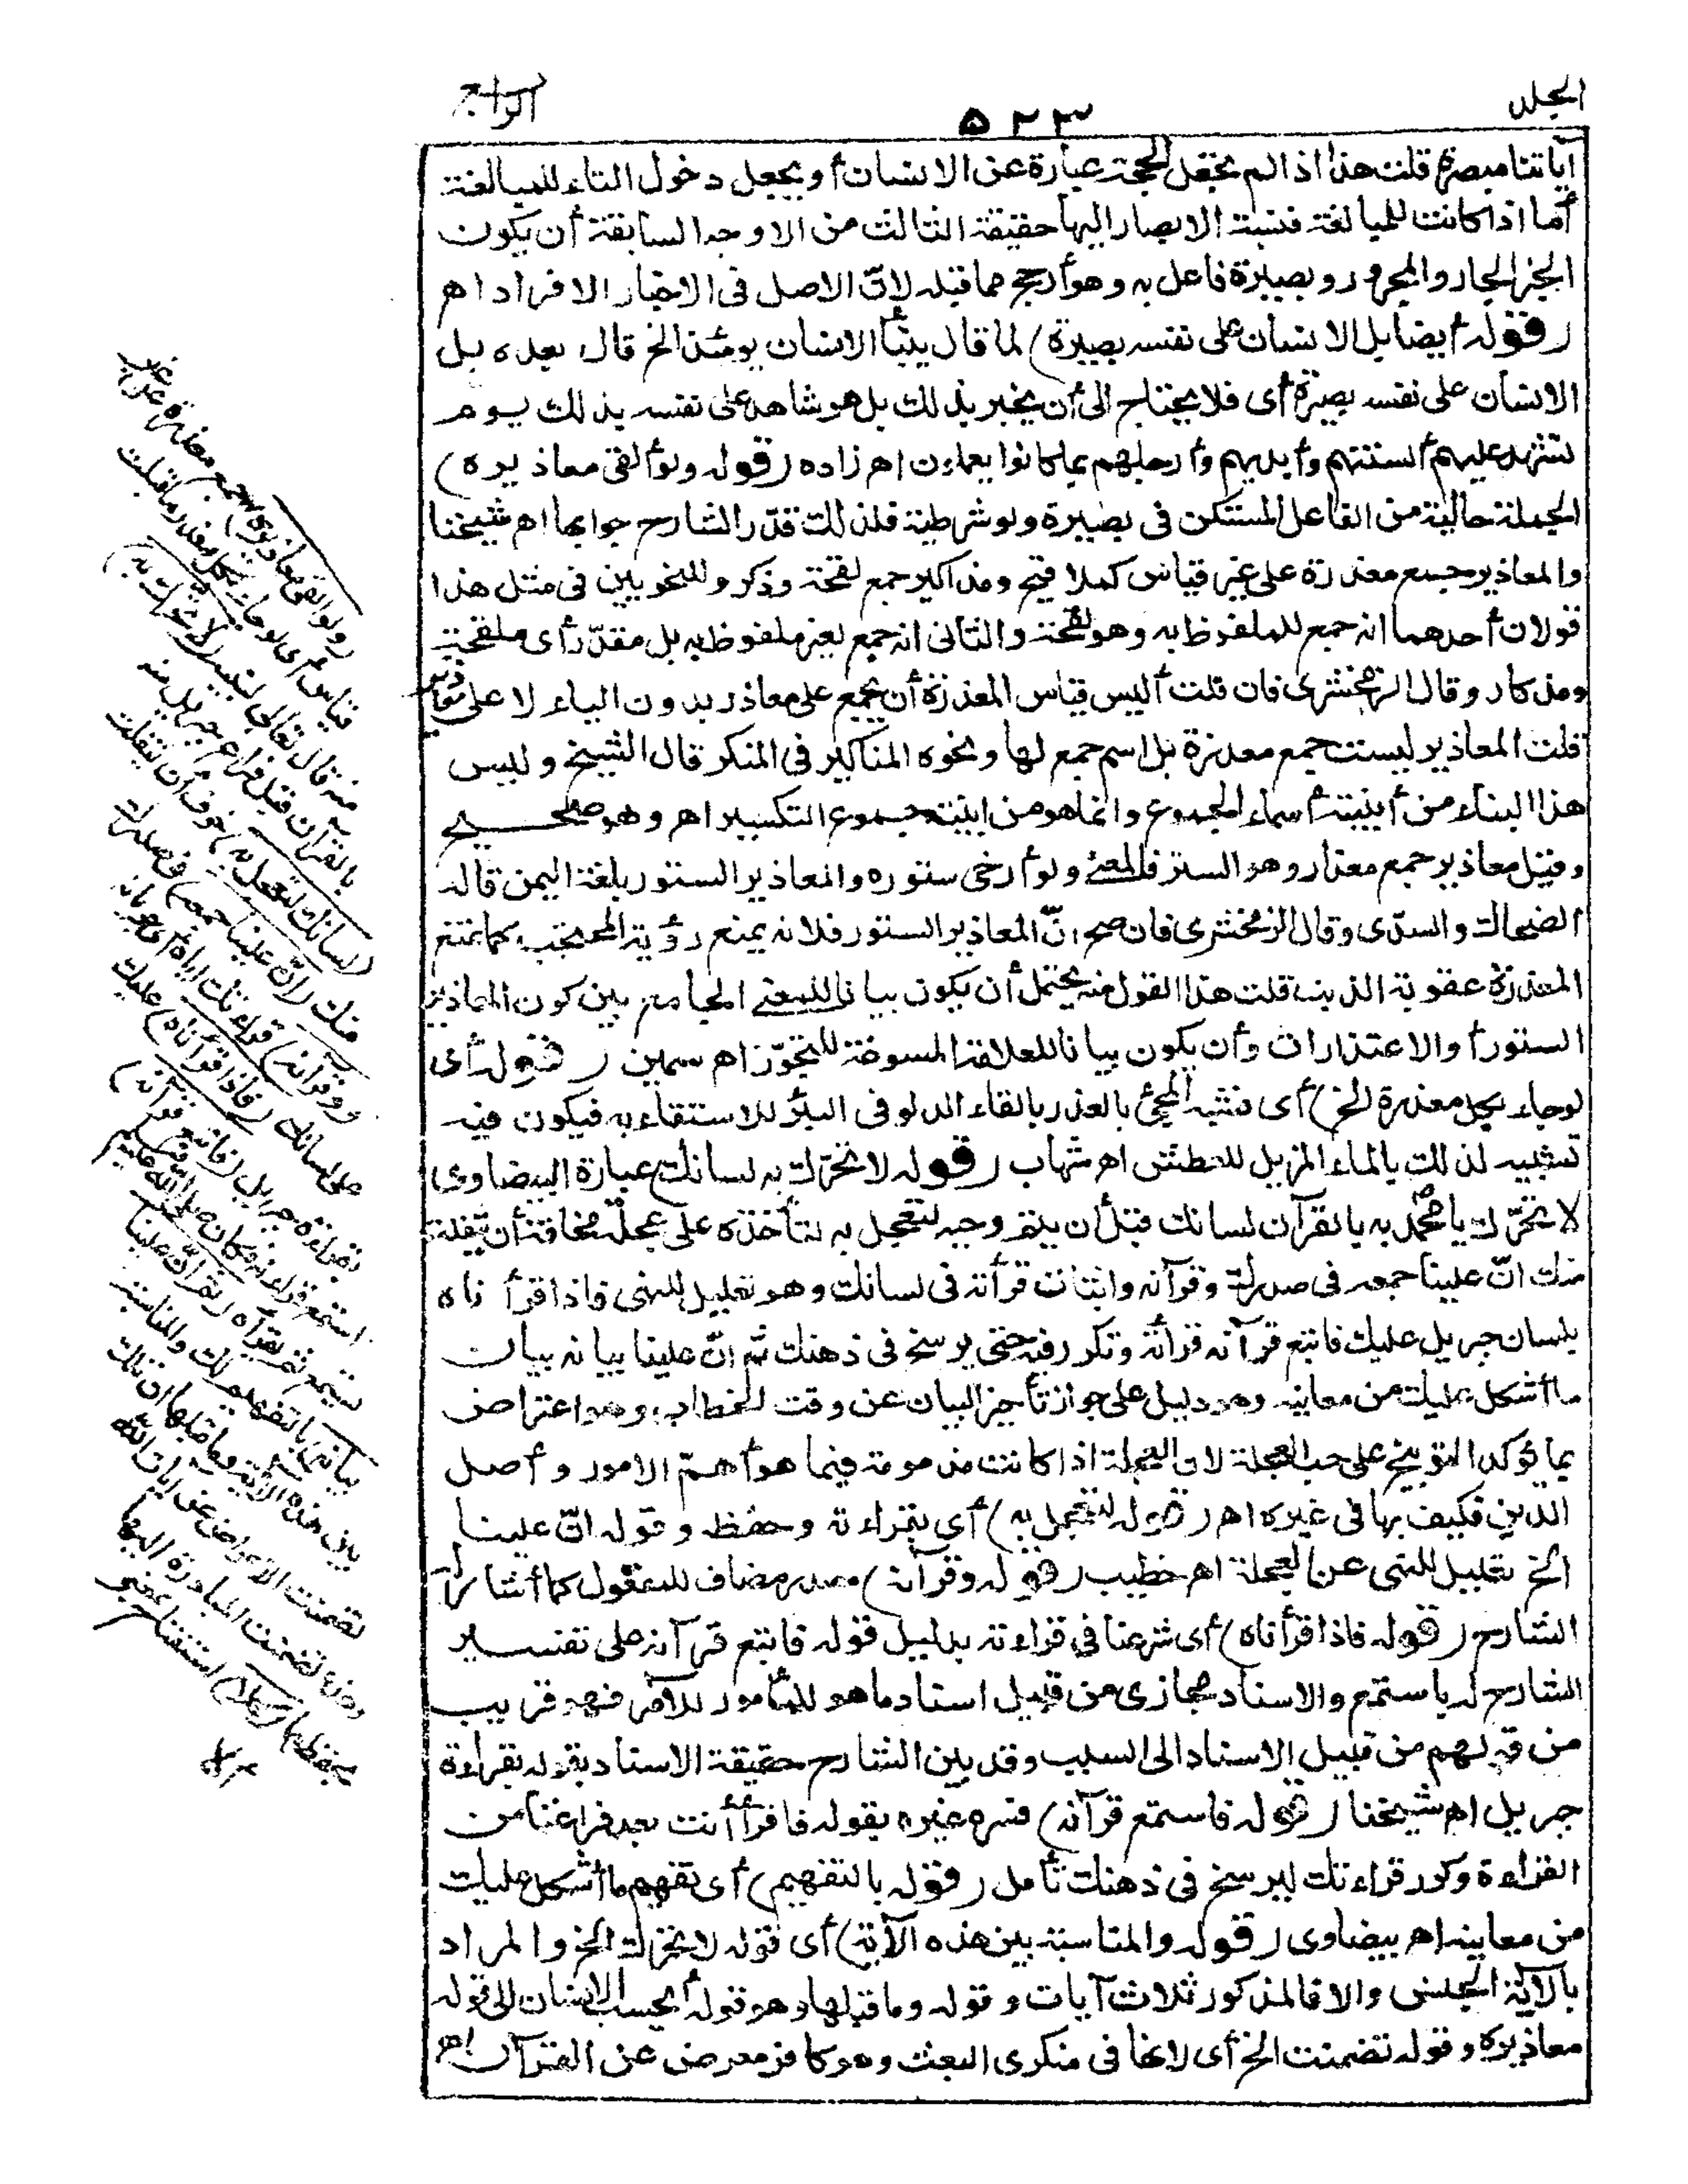 الجلد
٥٢٣
الرابع
آياتنا مبصرة قلت هذا اذا لم تجعل الحجة عبارة عن الانسان أو يجعل دخول التاء للمبالغة
أما اذا كانت للمبالغة فنسبة الابصار اليها حقيقة الثالث من الاوجه السابقة أن يكون
الخبر الجار والمجرور وبصيرة فاعل به وهو أرجح مما قبله لانّ الاصل فى الاخبار الافراد اهـ
(قوله أيضا بل الانسان على نفسه بصيرة) لما قال ينبأ الانسان يومئذ الخ قال بعده بل
الانسان على نفسه بصيرة أى فلا يحتاج الى أن يخبر بذلك بل هو شاهد على نفسه بذلك يوم
تشهد عليهم ألسنتهم وأيديهم وأرجلهم بما كانوا يعملون اهـ زاده (قوله ولو ألقى معاذيره)
الجملة حالية من الفاعل المستكن فى بصيرة ولو شرطية فلذلك قدّر الشارح جوابها اهـ شيخنا
والمعاذير جمع معذرة على غير قياس كملاقيح ومذاكير جمع لقحة وذكر وللنحويين فى مثل هذا
قولان أحدهما انه جمع للملفوظ به وهو لقحة والثانى انه جمع لغير ملفوظ به بل مقدّر أى ملقحة
ومذكار وقال الزمخشرى فان قلت أليس قياس المعذرة أن تجمع على معاذر بدون الياء لا على معاذير
قلت المعاذير ليست جمع معذرة بل اسم جمع لها ونحوه المناكير فى المنكر قال الشيخ وليس
هذا البناء من أبنية أسماء الجموع وانما هو من ابنية جموع التكسير اهـ وهو صحيح
وقيل معاذير جمع معذار وهو الستر فالمعنى ولو أرخى ستوره والمعاذير الستور بلغة اليمن قاله
الضحاك والسدّى وقال الزمخشرى فان صح انّ المعاذير الستور فلانه يمنع رؤية المحتجب كما تمنع
المعذرة عقوبة الذنب قلت هذا القول منه يحتمل أن يكون بيانا للمعنى الجامع بين كون المعاذير
الستور أو الاعتذارات وأن يكون بيانا للعلاقة المسوغة للتجوّز اهـ سمين (قوله أى
لو جاء بكل معذرة الخ) أى فشبه المجئ بالعذر بالقاء الدلو فى البئر للاستقاء به فيكون فيه
تشبيه لذلك بالماء المزيل للعطش اهـ شهاب (قوله لا تحرّك به لسانك) عبارة البيضاوى
لا تحرّك يا محمد به بالقرآن لسانك قبل أن يتم وحيه لتعجل به لتأخذه على عجلة مخافة أن يتفلت
منك انّ علينا جمعه فى صدرك وقرآنه واثبات قرآنه فى لسانك وهو تعليل للنهى فاذا قرأناه
بلسان جبريل عليك فاتبع قرآنه قرآنه وتكرر فيه حتى يرسخ فى ذهنك ثم انّ علينا بيانه بيان
ما أشكل عليك من معانيه وهو دليل على جواز تأخير البيان عن وقت الخطاب وهو اعتراض
بما يؤكد التوبيخ على حب العجلة لان العجلة اذا كانت مذمومة فيما هو أهمّ الامور وأصل
الدين فكيف بها فى غيره اهـ (قوله لتعجل به) أى بقراءته وحفظه وقوله انّ علينا
الخ تعليل للنهى عن العجلة اهـ خطيب (قوله وقرآنه) مصدر مضاف للمفعول كما أشار له
الشارح (قوله فاذا قرأناه) أى شرعنا فى قراءته بدليل قوله فاتبع قرآنه على تفسير
الشارح له باستمع والاسناد مجازى من قبيل اسناد ما هو للمأمور للآمر فهو قريب
من قولهم من قبيل الاسناد الى السبب وقد بين الشارح حقيقة الاسناد بقوله بقراءة
جبريل اهـ شيخنا (قوله فاستمع قرآنه) فسره غيره بقوله فاقرأ أنت بعد فراغنا من
القراءة وكرر قراءتك ليرسخ فى ذهنك تأمل (قوله بالتفهيم) أى تفهيم ما أشكل عليك
من معانيه اهـ بيضاوى (قوله والمناسبة بين هذه الآية) أى قوله لا تحرك الخ والمراد
بالآية الجنس والا فالمذكور ثلاث آيات وقوله وما قبلها وهو قوله أيحسب الانسان الى قوله
معاذيره وقوله تضمنت الخ أى لانها فى منكرى البعث وهو كافر معرض عن القرآن اهـ
(ولو ألقى معاذيره) جمع معذرة على غير
قياس أى لو جاء بكل معذرة ما قبلت
منه قال تعالى لنبيه (لا تحرك به)
بالقرآن قبل فراغ جبريل منه
(لسانك لتعجل به) خوف أن يتفلت
منك (انّ علينا جمعه) فى صدرك
(وقرآنه) قراءتك اياه أى جريانه
على لسانك (فاذا قرأناه) عليك
بقراءة جبريل (فاتبع قرآنه)
استمع قراءته فكان صلى الله عليه وسلم
يستمع ثم يقرأه (ثم انّ علينا
بيانه) بالتفهيم لك والمناسبة
بين هذه الآية وما قبلها ان تلك
تضمنت الاعراض عن آيات الله
وهذه تضمنت المبادرة اليها
بحفظها (كلا) استفتاح بمعنى